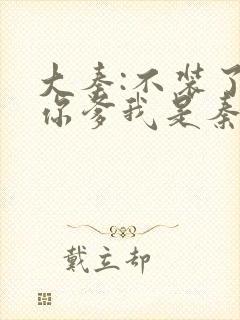 大秦:不装了
你爹我是秦
戴立却